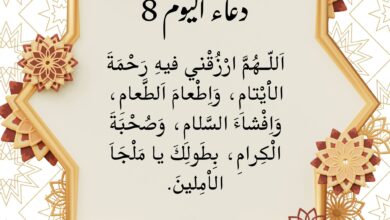 دعاء اليوم 8
اَللّـهُمَّ ارْزُقْني فيهِ رَحْمَةَ
الْأيْتامِ، وَاِطْعامَ اَلطَّعامِ،
وَاِفْشاءَ السَّلامِ، وَصُحْبَةَ
الْكِرامِ، بِطَولِكَ يا مَلْجَاَ
الْأمِلينَ.